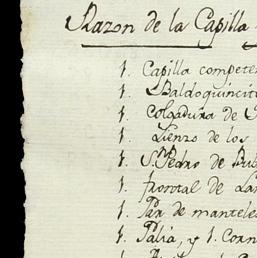 Razon de la Capilla
1. Capilla competen
1. Baldoquincit
1. Colgadura de
1. Lienzo de los
1. S. Pedro de
1. frontal de
1. Par de mantele
1. Palia, y 1. Corn